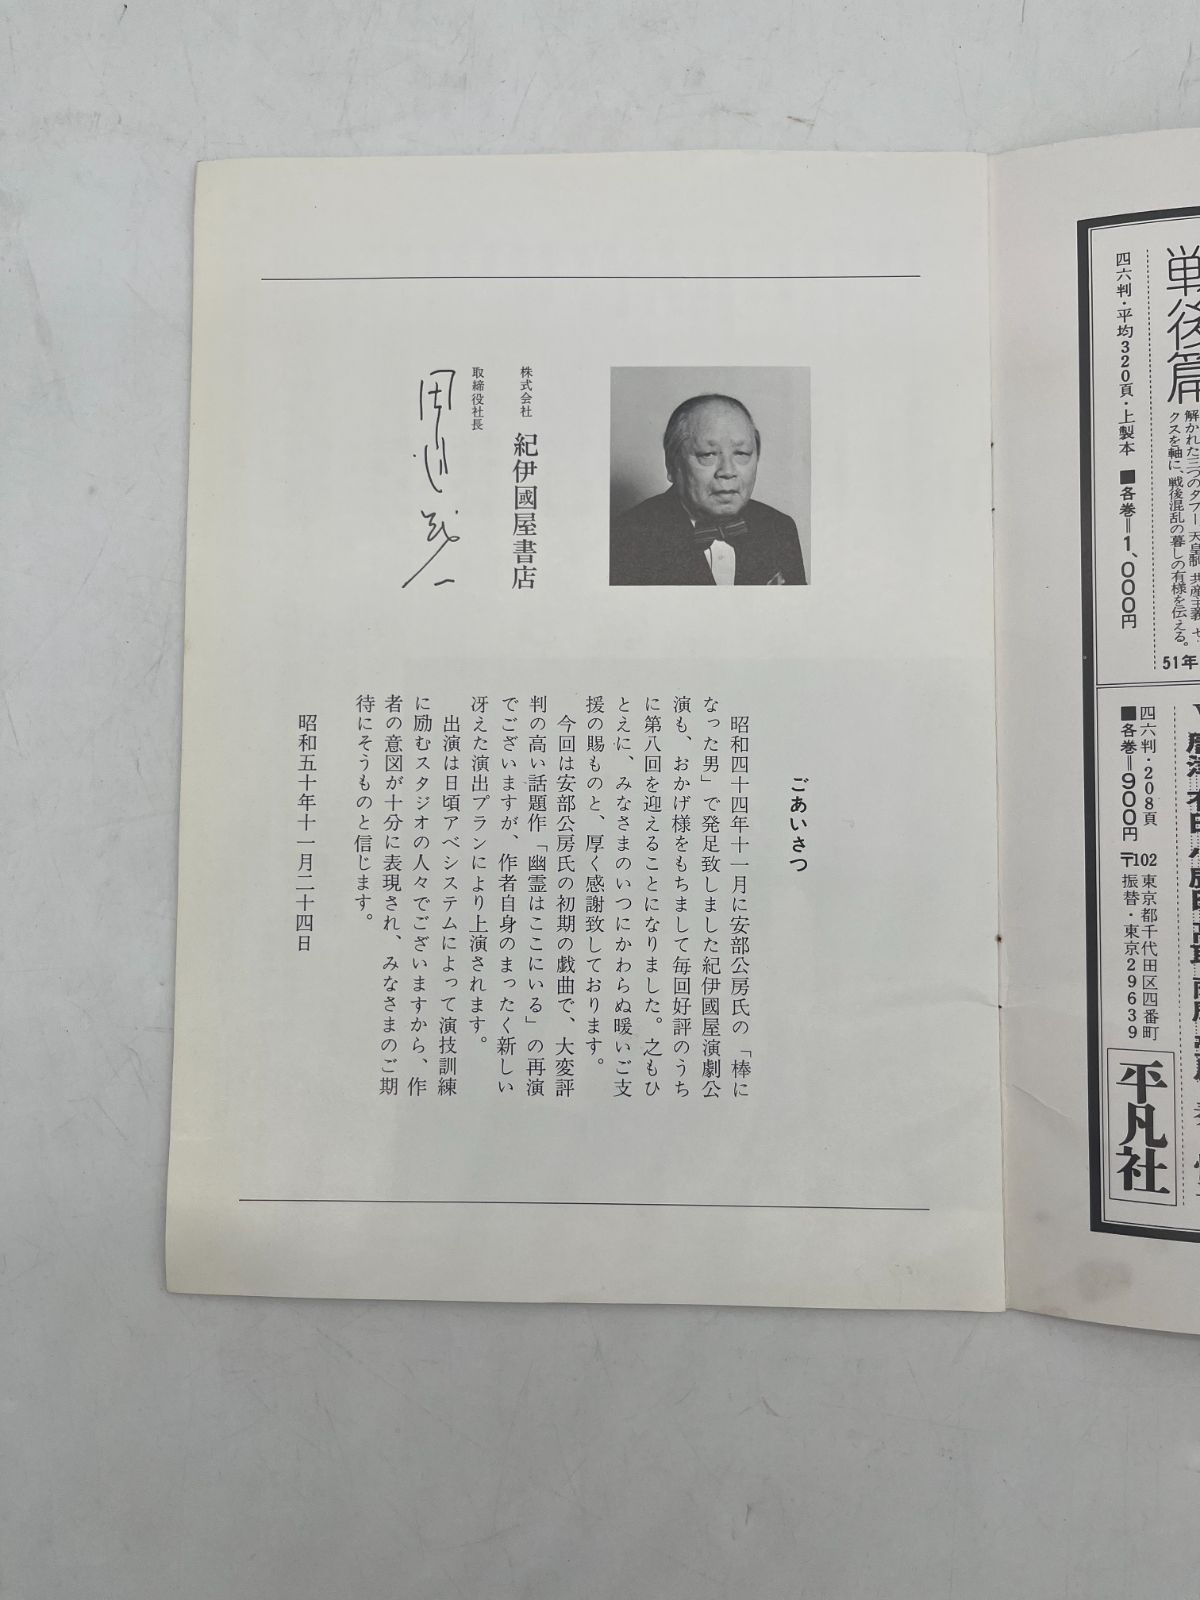 戦後篇
解かれた三つのタブー
クスを軸に、戦後混乱の暮しの有様を伝える。
51年
四六判・平均320頁・上製本 ■各巻=1,000円
四六判・208頁
■各巻=900円
〒102 東京都千代田区四番町
振替・東京29639
平凡社
ごあいさつ
昭和四十四年十一月に安部公房氏の「棒に
なった男」で発足致しました紀伊國屋演劇公
演も、おかげ様をもちまして毎回好評のうち
に第八回を迎えることになりました。之もひ
とえに、みなさまのいつにかわらぬ暖いご支
援の賜ものと、厚く感謝致しております。
今回は安部公房氏の初期の戯曲で、大変評
判の高い話題作「幽霊はここにいる」の再演
でございますが、作者自身のまったく新しい
冴えた演出プランにより上演されます。
出演は日頃アベシステムによって演技訓練
に励むスタジオの人々でございますから、作
者の意図が十分に表現され、みなさまのご期
待にそうものと信じます。
昭和五十年十一月二十四日
株式会社 紀伊國屋書店
取締役社長